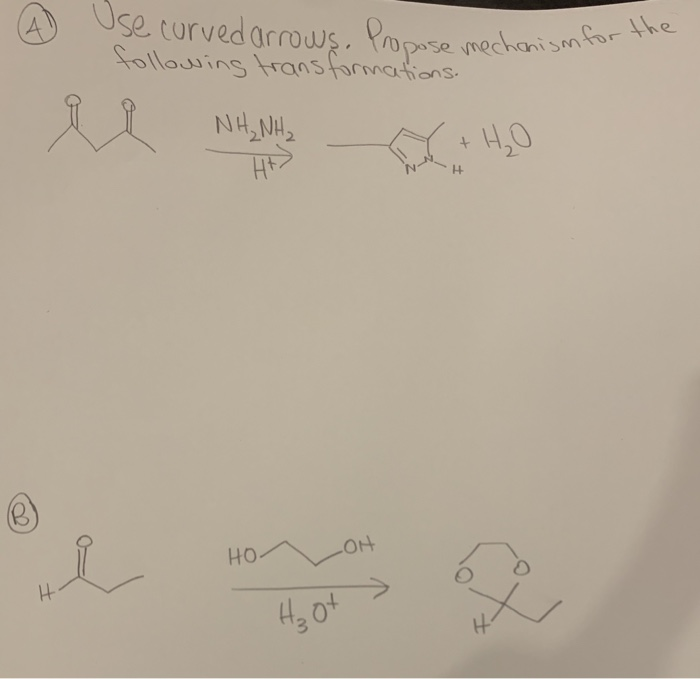 A) Use curved arrows. Propose mechanism for the
following transformations.
O O
NH₂NH₂
H⁺
N N H
+ H₂O
B
O
H
HO OH
H₃O⁺
O O
H